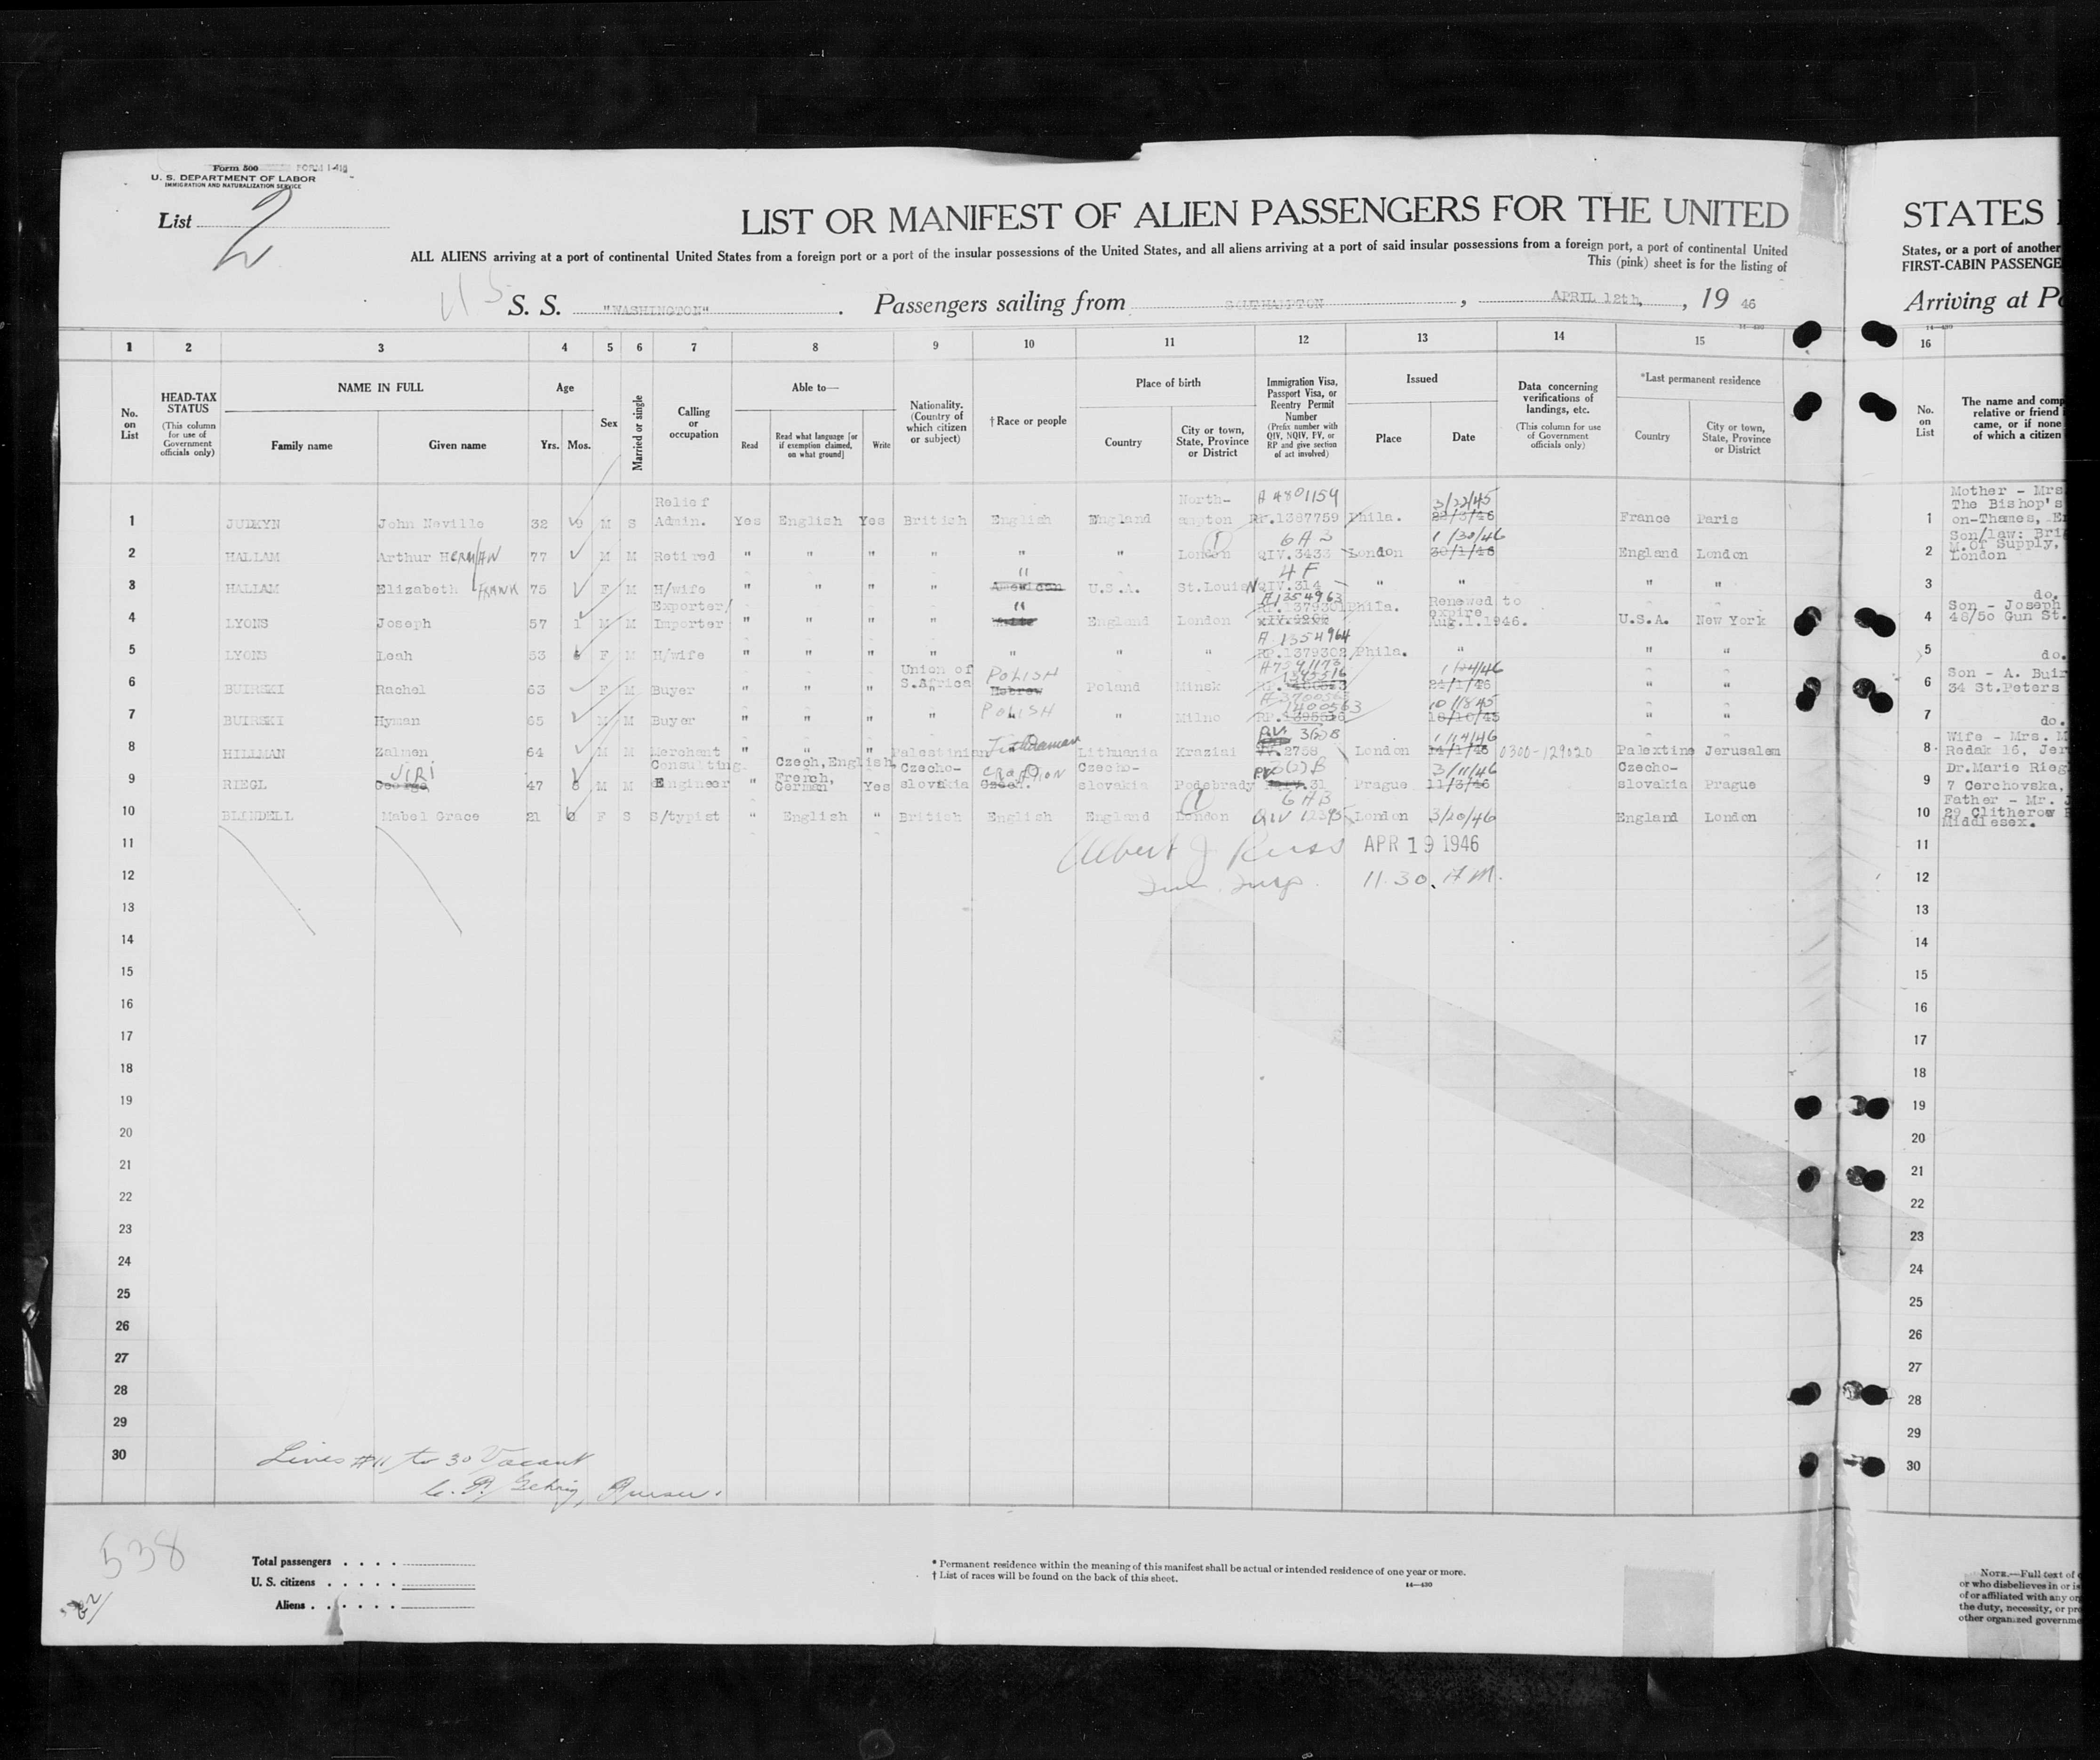 Form 500 FORM I-418
U. S. DEPARTMENT OF LABOR
IMMIGRATION AND NATURALIZATION SERVICE
List 2
LIST OR MANIFEST OF ALIEN PASSENGERS FOR THE UNITED
ALL ALIENS arriving at a port of continental United States from a foreign port or a port of the insular possessions of the United States, and all aliens arriving at a port of said insular possessions from a foreign port, a port of continental United
This (pink) sheet is for the listing of
S. S. "WASHINGTON". Passengers sailing from SOUTHAMPTON, APRIL 12th, , 19 46
STATES
States, or a port of another
FIRST-CABIN PASSENGE
Arriving at Po
1 2 3 4 5 6 7 8 9 10 11 12 13 14 15 16
No. on List
HEAD-TAX STATUS (This column for use of Government officials only)
NAME IN FULL
Family name Given name
Age
Yrs. Mos.
Sex
Married or single
Calling or occupation
Able to—
Read Read what language [or if exemption claimed, on what ground] Write
Nationality. (Country of which citizen or subject)
† Race or people
Place of birth
Country City or town, State, Province or District
Immigration Visa, Passport Visa, or Reentry Permit Number (Prefix number with QIV, NQIV, PV, or RP and give section of act involved)
Issued
Place Date
Data concerning verifications of landings, etc. (This column for use of Government officials only)
*Last permanent residence
Country City or town, State, Province or District
No. on List
The name and comp
relative or friend
came, or if none
of which a citizen
1 JUDKYN John Neville 32 M S Relief Admin. Yes English Yes British English England North-ampton A 4801154 RP.1387759 Phila. 3/22/45 France Paris
2 HALLAM Arthur HERMAN 77 M M Retired " " " " " " London 6 A 3 QIV.3433 London 1/30/46 30/1/46 England London
3 HALLAM Elizabeth FRANK 75 F M H/wife " " " " " American U.S.A. St.Louis 4 F NQIV.314 " " " "
4 LYONS Joseph 57 1 M M Exporter/Importer " " " " " England London A1354963 RP.1379301 Phila. Renewed to expire Aug.1.1946. U.S.A. New York
5 LYONS Leah 53 F M H/wife " " " " " " " A 1354964 RP.1379302 Phila. " " "
6 BUIRSKI Rachel 63 F M Buyer " " " Union of S.Africa POLISH Hebrew Poland Minsk 1/24/46 24/1/46 " "
7 BUIRSKI Hyman 65 M M Buyer " " " " POLISH " Milno 1400563 10/18/45 18/10/45 " "
8 HILLMAN Zalmen 64 M M Merchant " " " Palestinian Lithuania Kraziai PV. 3608 2768 London 1/14/46 14/1/46 0300-129020 Palextine Jerusalem
9 RIEGL JIRI George 47 M M Consulting Engineer " Czech, English, French, German Yes Czecho-slovakia Czech. Czecho-slovakia Podebrady PV 3(2) B 31 Prague 3/11/46 11/3/46 Czecho-slovakia Prague
10 BLINDELL Mabel Grace 21 F S S/typist " English " British English England London 6 A 3 QIV 12395 London 3/20/46 England London
11 APR 19 1946
12 11.30. A M.
13
14
15
16
17
18
19
20
21
22
23
24
25
26
27
28
29
30
Lines #11 to 30 Vacant
Purser.
1 Mother - Mrs
The Bishop's
on-Thames, E
2 Son/law: Bri
M.of Supply,
London
3 do.
4 Son - Joseph
48/50 Gun St.
5 do.
6 Son - A. Buir
34 St.Peters
7 do.
8 Wife - Mrs. M
Redak 16, Jer
9 Dr.Marie Rieg
7 Cerchovska,
10 Father - Mr. J
29 Clitherow
Middlesex.
11
12
13
14
15
16
17
18
19
20
21
22
23
24
25
26
27
28
29
30
538
Total passengers
U. S. citizens
Aliens
* Permanent residence within the meaning of this manifest shall be actual or intended residence of one year or more.
† List of races will be found on the back of this sheet.
14—430
NOTE.—Full text of
or who disbelieves in or is
of or affiliated with any or
the duty, necessity, or pr
other organized governme